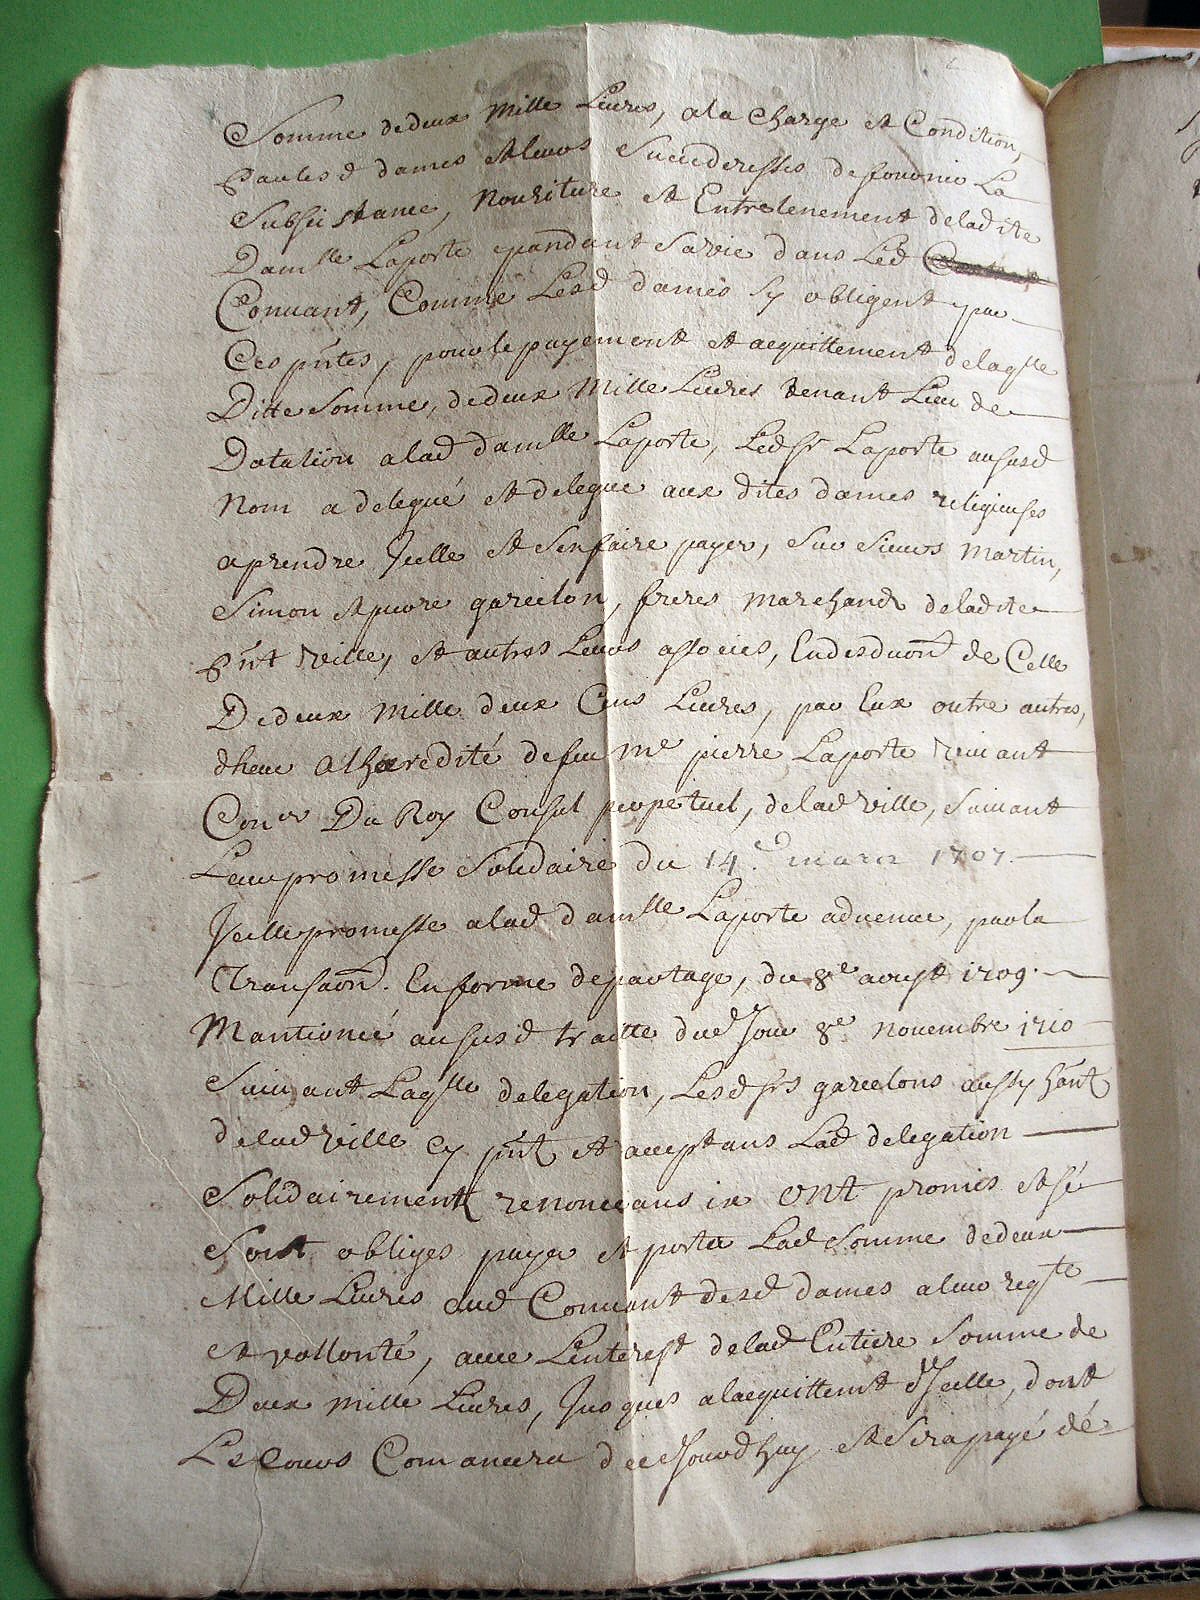 Somme dedeux mille Liures, ala charge et Condition,
Pauleśd dames etleurs Succederesses defournir La
Subsistance, Nouriture et Entretenement deladite
Damlle Laporte pandant Savie dans Led
Conuant, Comme Lesd dames sy obligent par
Ces pñtes, pourlepayement et acquittement delaqlle
Ditte Somme, dedeux Mille Liures tenant Lieu de
Dotation alad damlle Laporte, Ledsr Laporte aususd
Nom a delegué et delegue aux dites dames religieuses
aprendre Jcelle et Senfaire payer, Sur Sieurs Martin,
Simon etpierre garcelon, freres marchands deladite
pñt ville, et autres Leurs associes, Endesduon de Celle
Dedeux Mille deux Cens Liures, par Eux outre autres,
dheue alhœredité defeu Me pierre Laporte viuant
Coner Du Roy Consul perpetuel, delad ville, Suiuant
Leurpromesse Solidaire du 14e mars 1707.
Jcellepromesse alad damlle Laporte aduenue, parla
Transaon. Enforme departage, du 8e aoust 1709.
Mantionné aususd traitte dud Jour 8e novembre 1710
Suiuant Laqlle delegation, Lesd srs garcelons aussy hãnt
delad ville cy pñt et acceptans Lad delegation
Solidairement renonceans ix ont promis et sé
Sont obliges payer et porter Lad Somme dedeux
Mille Liures aud Conuant desd dames aleur reqte
et vollonté, auec Linterest delad Entiere Somme de
Deux mille Liures, Jusques alacquittemt dJcelle, dont
Le Cours Comancera decejourdhuy et Sera payé dé